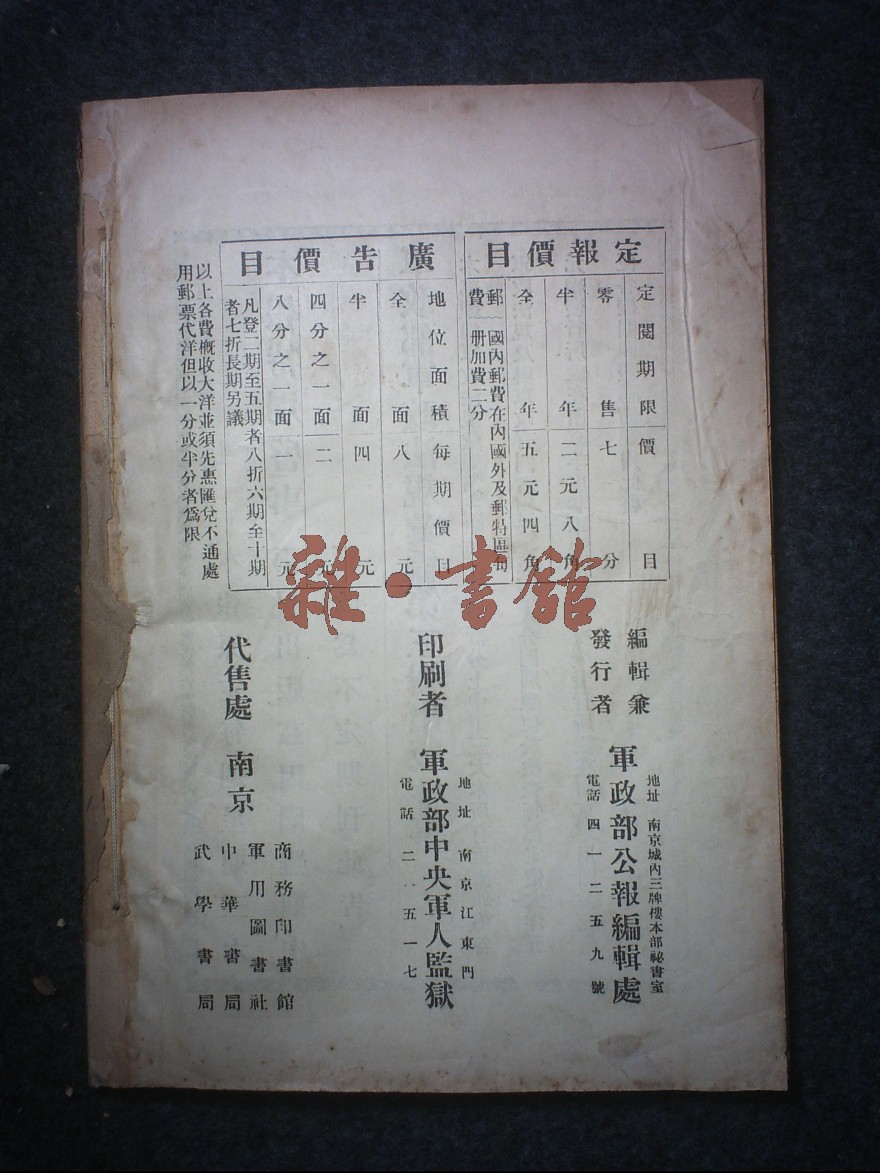 定報價目
定閱期限 價目
零售 七分
半年 二元八角
全年 五元四角
郵費 國內郵費在內國外及郵特區每
册加費二分
廣告價目
地位面積 每期價目
全面 八元
半面 四元
四分之一面 二元
八分之一面 一元
凡登二期至五期者八折六期至十期
者七折長期另議
以上各費概收大洋並須先惠匯兌不通處
用郵票代洋但以一分或半分者爲限
編輯兼
發行者
地址 南京城內三牌樓本部祕書室
軍政部公報編輯處
電話 四一二五九號
印刷者
地址 南京江東門
軍政部中央軍人監獄
電話 二一五一七
代售處 南京
商務印書館
軍用圖書社
中華書局
武學書局
雜·書館